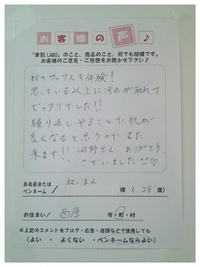 お客様の声♪
「素肌LABO」のこと、商品のこと、何でも結構です。
お客様のご意見・ご感想をお聞かせ下さい♪
和のワックスを体験!
思っている以上に汚れが取れて
ビックリでした!!
繰り返しやることで肌が
良くなると思うのでまた
来ます!! 河野さん、ありがとう
ございました
お名前または
ペンネーム
様 ( 28歳 )
お住まい/ 西原 市・町・村
※上記のコメントをブログ・広告・店頭などで使用しても
( よい ・ よくない ・ ペンネームならよい )